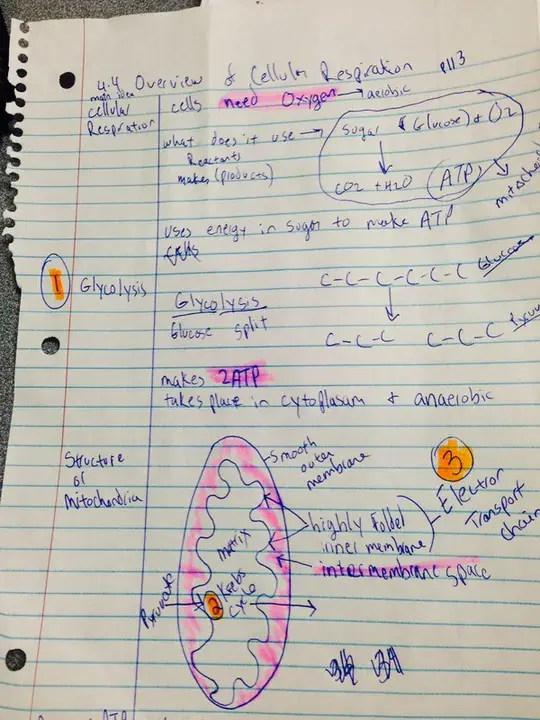 4.4 Overview of Cellular Respiration p113
main idea
cellular
Respiration
cells need Oxygen → aerobic
what does it use → sugar (Glucose) + O2
Reactants
makes (products)
CO2 + H2O ATP
uses energy in sugar to make ATP
1 Glycolysis
C-C-C-C-C-C Glucose
Glycolysis
Glucose split
C-C-C C-C-C
makes 2ATP
takes place in cytoplasum + anaerobic
Structure
of
Mitochondria
smooth
outer
membrane
3
Electron
Transport
chain
highly folded
inner membrane
intermembrane space
matrix
Pyruvate
2
Krebs
cycle